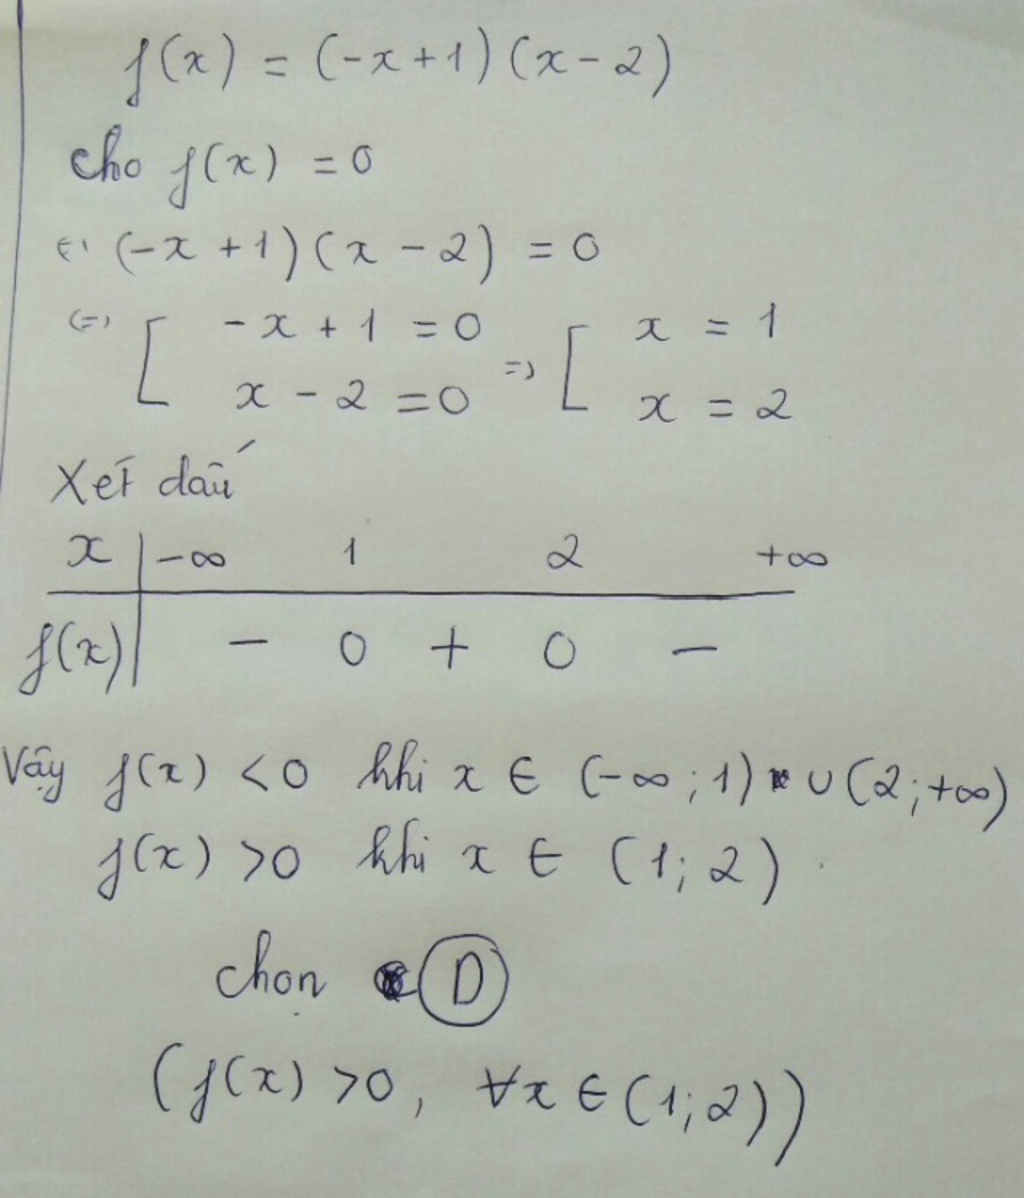 f(x) = (-x+1)(x-2)
cho f(x) = 0
(-x+1)(x-2) = 0
(=) [ -x+1 = 0 => [ x = 1
x-2 = 0 x = 2
Xét dấu
x | -∞ 1 2 +∞
f(x) | - 0 + 0 -
Vậy f(x) < 0 khi x ∈ (-∞;1) ∪ (2;+∞)
f(x) > 0 khi x ∈ (1;2)
chọn D
(f(x) > 0, ∀x ∈ (1;2))